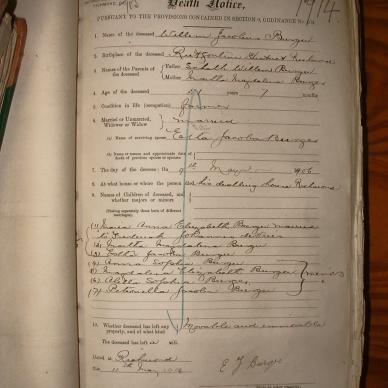 1914
Death Notice,
PURSUANT TO THE PROVISIONS CONTAINED IN SECTION 9, ORDINANCE No. 104.
1. Name of the deceased Willem Jacobus Burger
2. Birthplace of the deceased District Richmond
3. Names of the Parents of the deceased
Father Schalk Willem Burger
Mother Martha Magdalena Burger
4. Age of the deceased years 7 months
5. Condition in life (occupation) Farmer
6. Married or Unmarried, Widower or Widow married
(a) Name of surviving spouse Jacoba Burger
(b) Name or names and approximate date of death of previous spouse or spouses
7. The day of the decease: On 9th May 1906
8. At what house or where the person died his dwelling house Richmond
9. Names of Children of deceased, and whether majors or minors
(Stating separately those born of different marriages)
(1) Maria Anna Elizabeth Burger married
to Frederick Johannes
(2) Martha Magdalena Burger
(3) Jacoba Burger
(4) Anna Sophia Burger
(5) Magdalena Elizabeth Burger
(6) Sophia Burger
(7) Petronella Jacoba Burger
minors
10. Whether deceased has left any property, and of what kind Movable and immovable
The deceased has left a will.
Dated at Richmond
this 11th May 1906
E J Burger